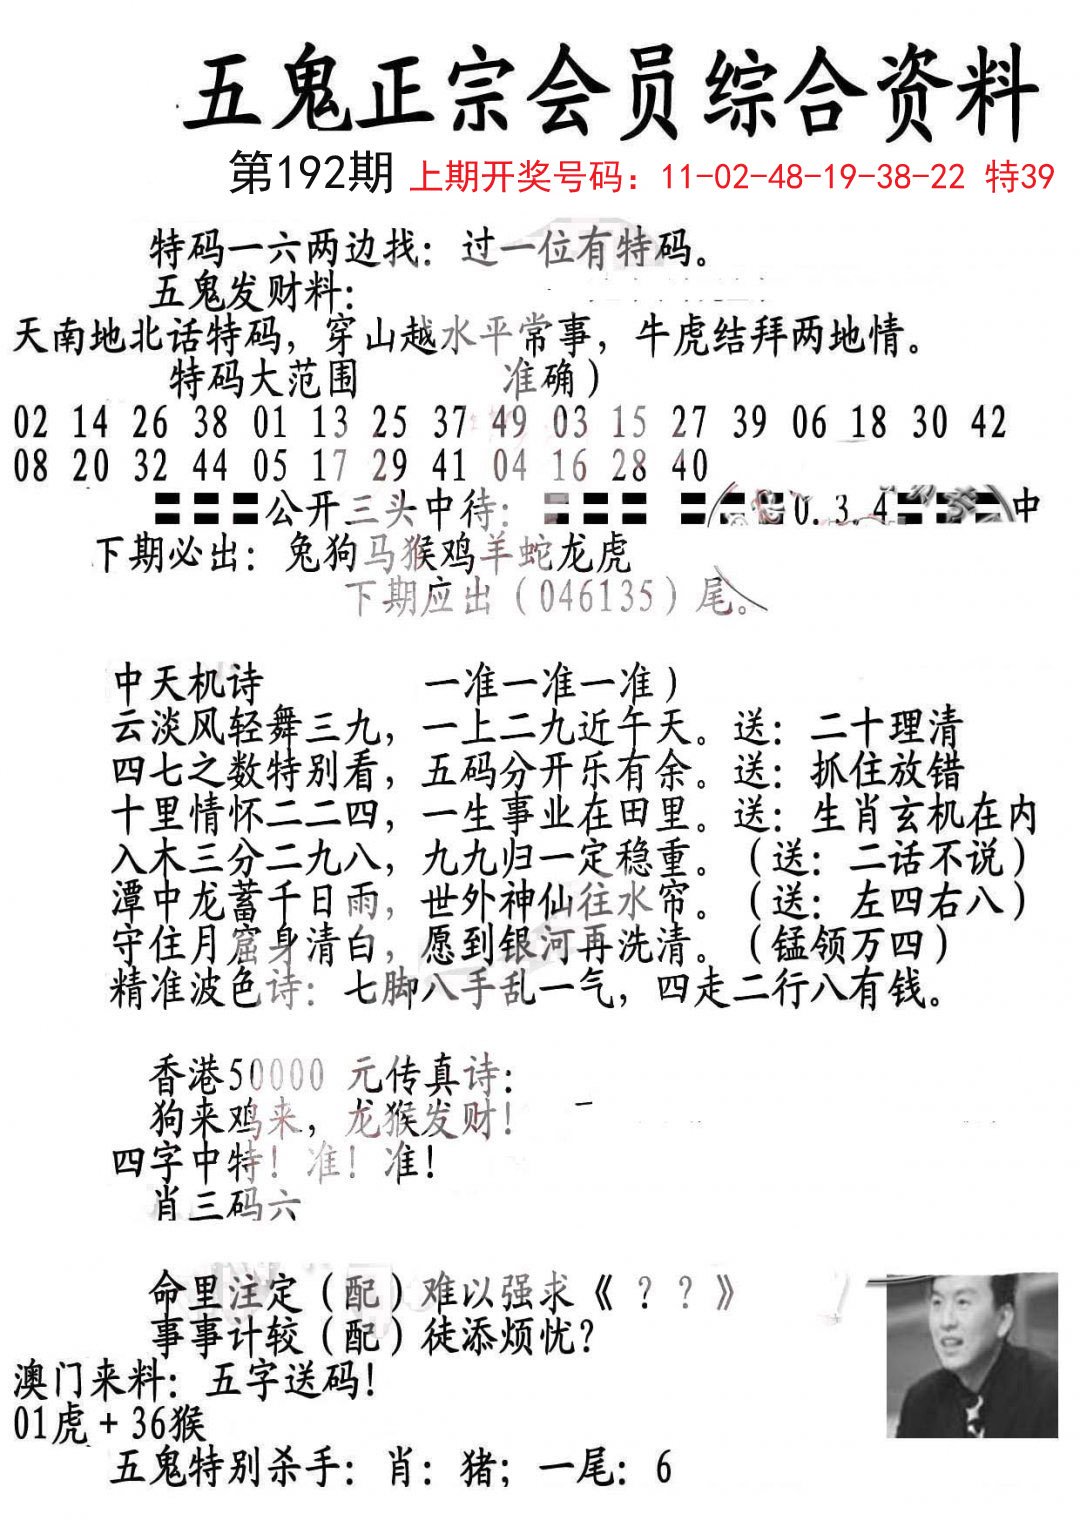 五鬼正宗会员综合资料
第192期 上期开奖号码：11-02-48-19-38-22 特39
特码一六两边找：过一位有特码。
五鬼发财料：
天南地北话特码，穿山越水平常事，牛虎结拜两地情。
特码大范围 准确）
02 14 26 38 01 13 25 37 49 03 15 27 39 06 18 30 42
08 20 32 44 05 17 29 41 04 16 28 40
公开三头中待： 0.3.4 中
下期必出：兔狗马猴鸡羊蛇龙虎
下期应出（046135）尾。
中天机诗 一准一准一准）
云淡风轻舞三九，一上二九近午天。送：二十理清
四七之数特别看，五码分开乐有余。送：抓住放错
十里情怀二二四，一生事业在田里。送：生肖玄机在内
入木三分二九八，九九归一定稳重。（送：二话不说）
潭中龙蓄千日雨，世外神仙往水帘。（送：左四右八）
守住月窟身清白，愿到银河再洗清。（锰领万四）
精准波色诗：七脚八手乱一气，四走二行八有钱。
香港50000 元传真诗：
狗来鸡来，龙猴发财！
四字中特！准！准！
肖三码六
命里注定（配）难以强求《？？》
事事计较（配）徒添烦忧？
澳门来料：五字送码！
01虎+36猴
五鬼特别杀手：肖：猪；一尾：6